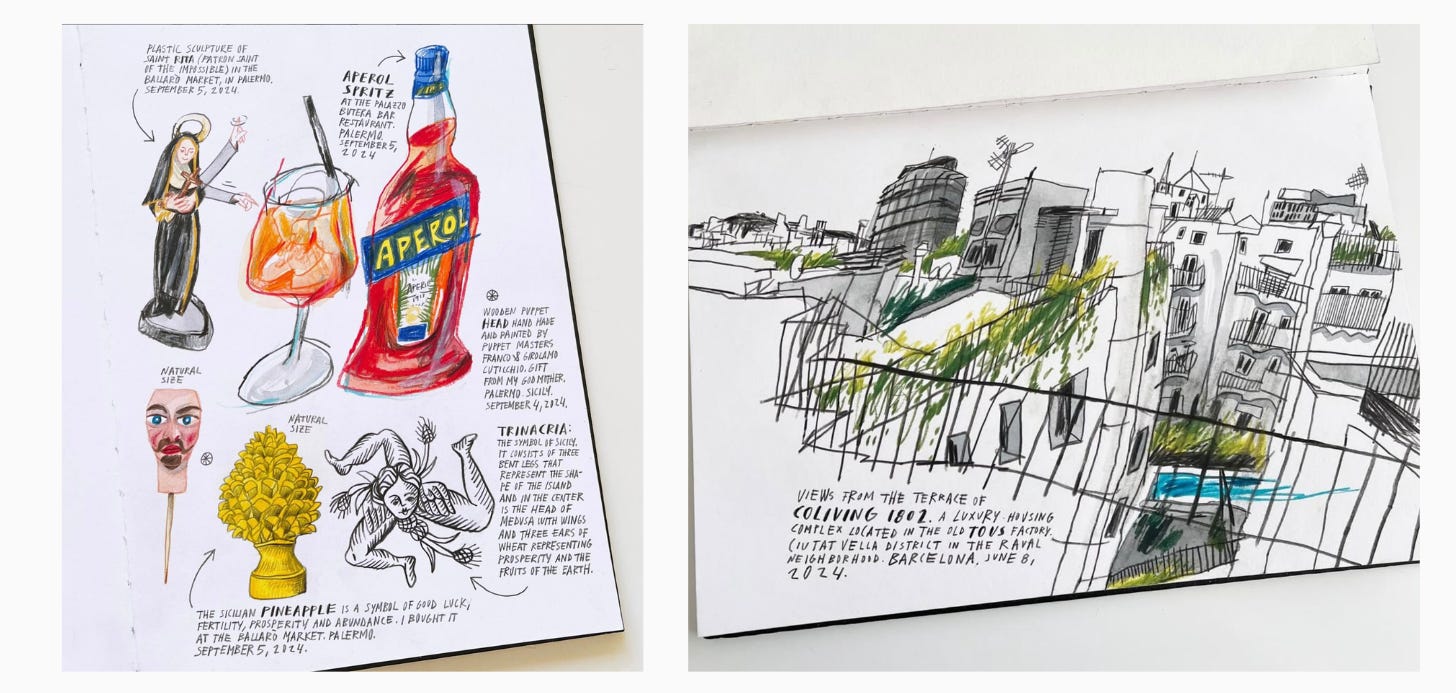 PLASTIC SCULPTURE OF
SAINT RITA (PATRON SAINT
OF THE IMPOSSIBLE) IN THE
BALLARÒ MARKET, IN PALERMO.
SEPTEMBER 5, 2024.
APEROL
SPRITZ
AT THE PALAZZO
BUTERA BAR
RESTAURANT.
PALERMO.
SEPTEMBER 5,
2024
APEROL
WOODEN PUPPET
HEAD HAND MADE
AND PAINTED BY
PUPPET MASTERS
FRANCO & GIROLAMO
CUTICCHIO. GIFT
FROM MY GODMOTHER.
PALERMO. SICILY.
SEPTEMBER 4, 2024.
NATURAL
SIZE
NATURAL
SIZE
TRINACRIA:
THE SYMBOL OF SICILY.
IT CONSISTS OF THREE
BENT LEGS THAT
REPRESENT THE SHA-
PE OF THE ISLAND
AND IN THE CENTER
IS THE HEAD OF
MEDUSA WITH WINGS
AND THREE EARS OF
WHEAT REPRESENTING
PROSPERITY AND THE
FRUITS OF THE EARTH.
THE SICILIAN PINEAPPLE IS A SYMBOL OF GOOD LUCK,
FERTILITY, PROSPERITY AND ABUNDANCE. I BOUGHT IT
AT THE BALLARÒ MARKET. PALERMO.
SEPTEMBER 5, 2024.
VIEWS FROM THE TERRACE OF
COLIVING 1802. A LUXURY HOUSING
COMPLEX LOCATED IN THE OLD TOUS FACTORY.
CIUTAT VELLA DISTRICT IN THE RAVAL
NEIGHBORHOOD. BARCELONA, JUNE 8,
2024.